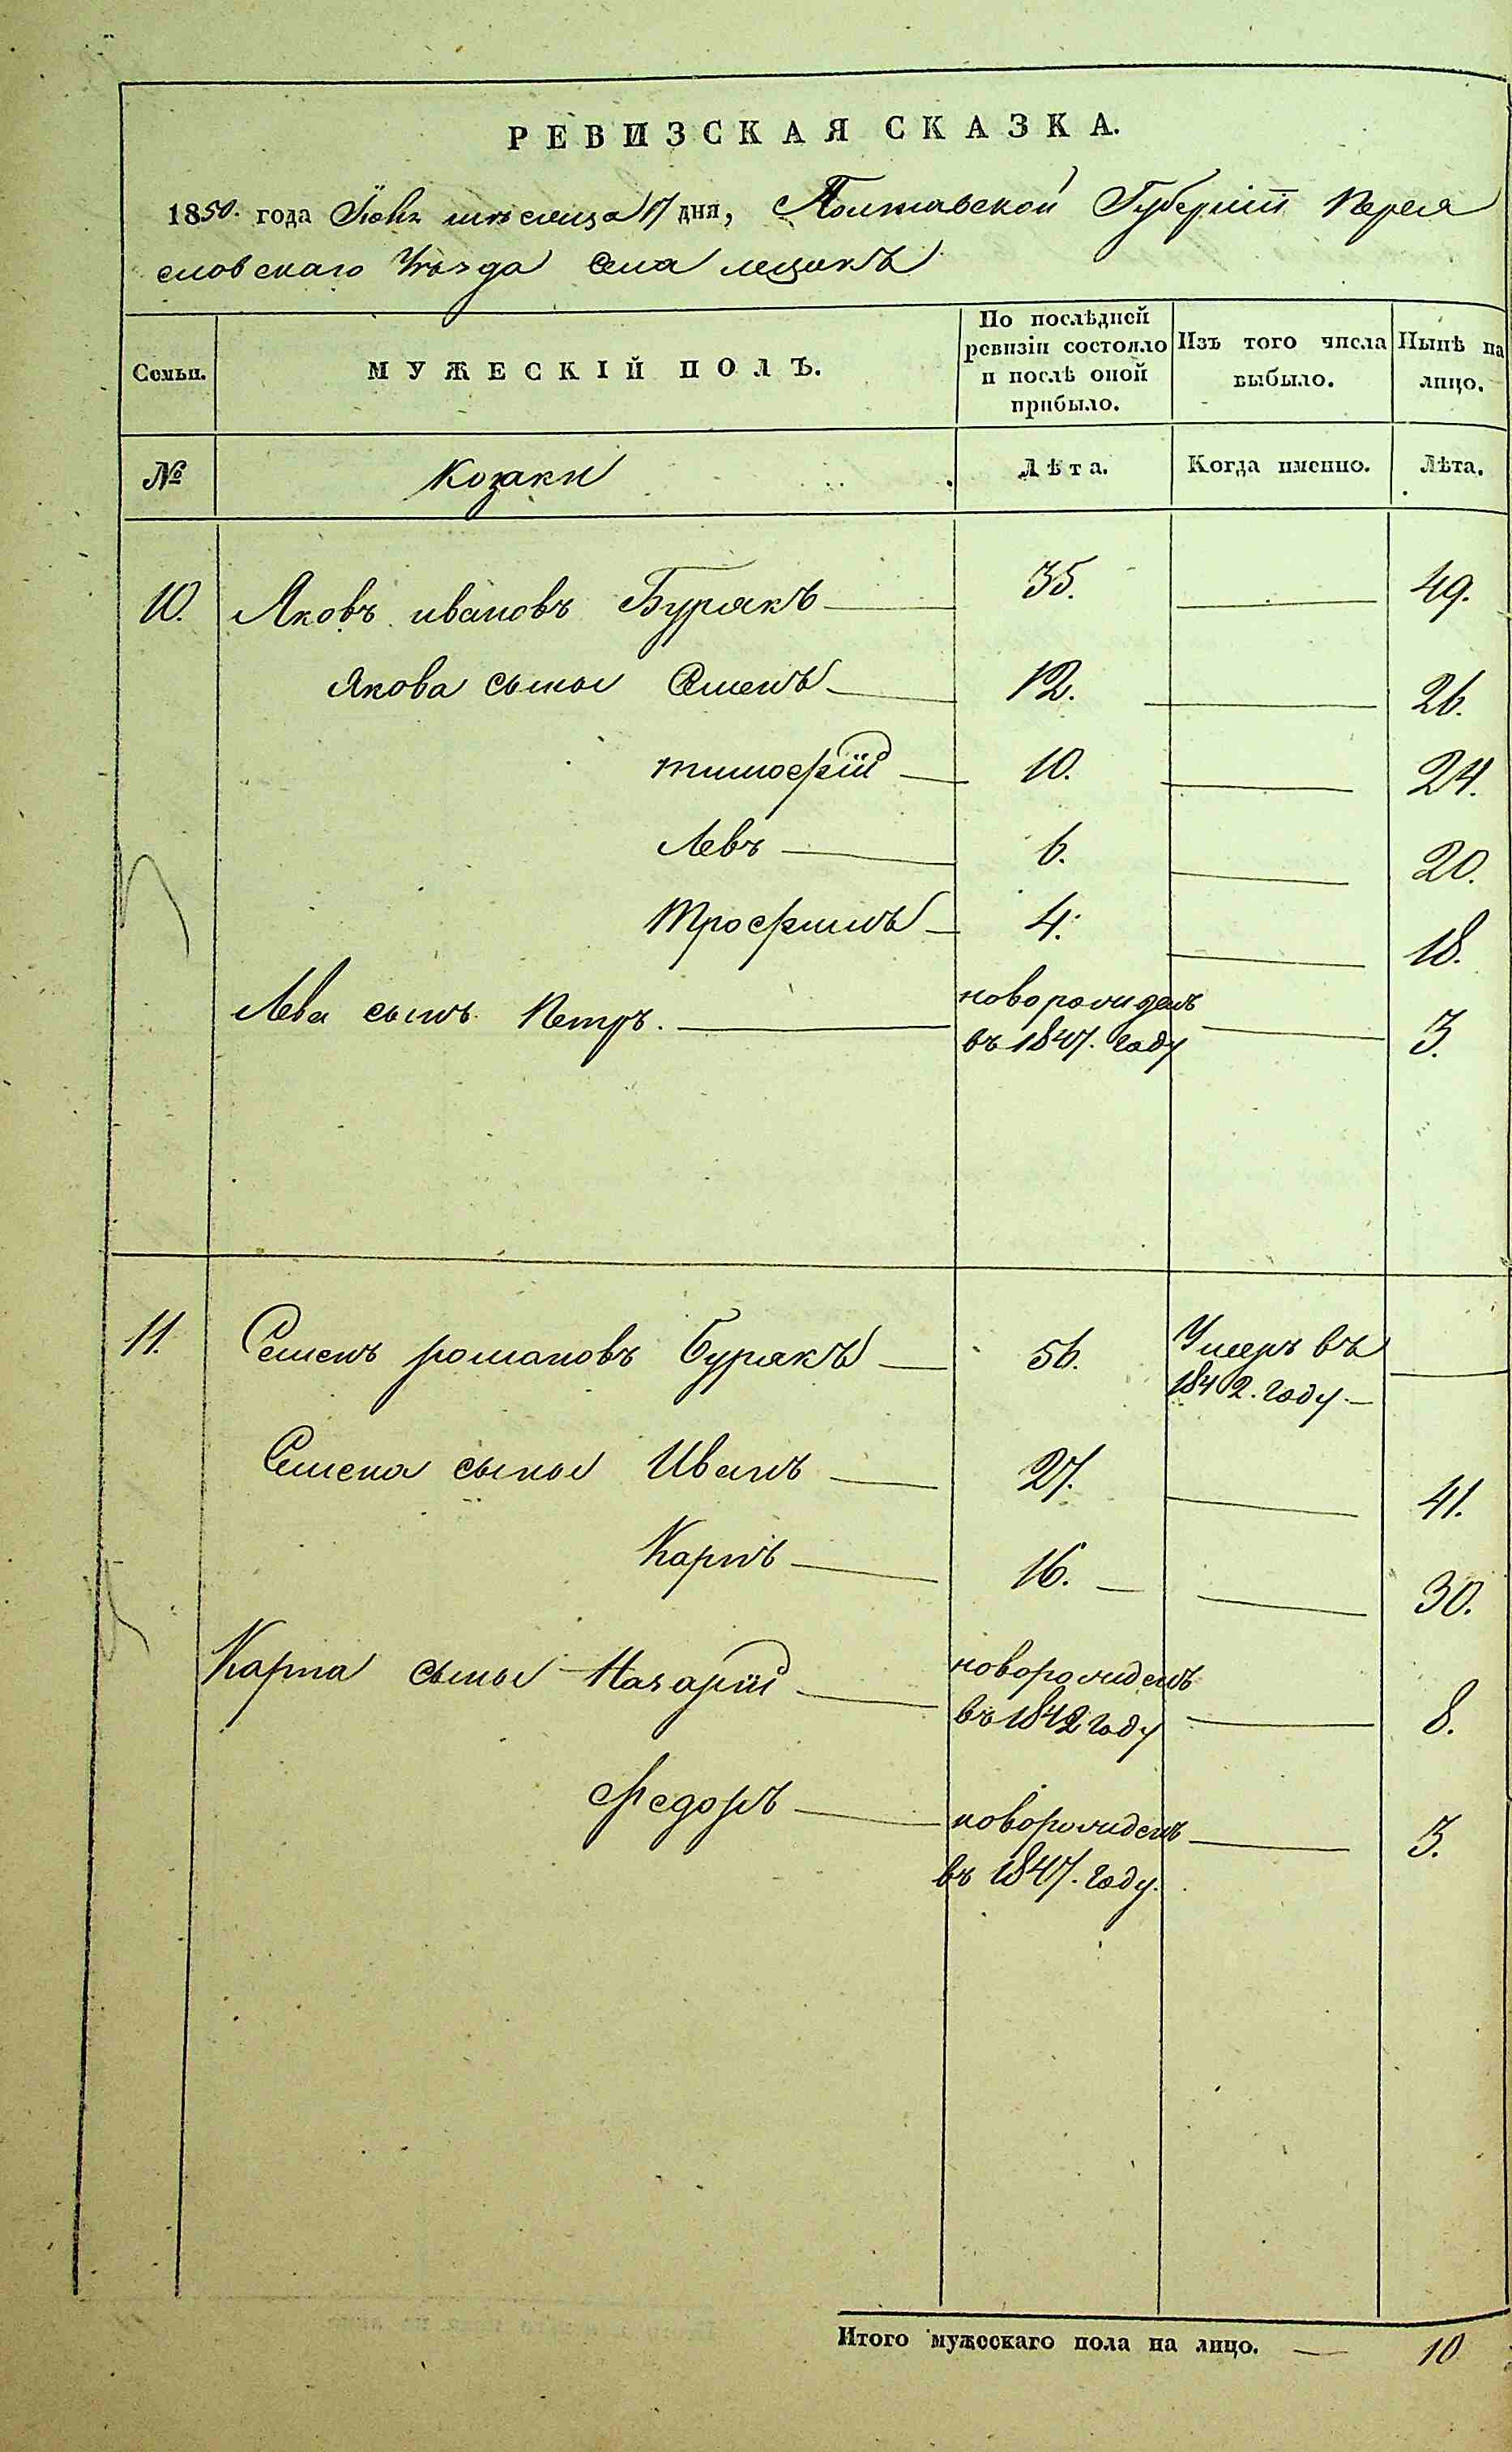 РЕВИЗСКАЯ СКАЗКА.
1850. года Июня мѣсяца 17 дня, Полтавской Губерніи Перея
словскаго Уѣзда Села Лецокъ
Семьи.
МУЖЕСКІЙ ПОЛЪ.
По послѣдней
ревизіи состояло
и послѣ оной
прибыло.
Изъ того числа
выбыло.
Нынѣ на
лицо.
№
Козаки
Лѣта.
Когда именно.
Лѣта.
10. Яковъ ивановъ Бурякъ 35. 49.
Якова сыны Семенъ 12. 26.
тимофій 10. 24.
Левъ 6. 20.
Трофимъ 4. 18.
Лева сынъ Петръ. новорожденъ
въ 1847. году 3.
11. Семенъ романовъ Бурякъ 56. Умеръ въ
1842. году
Семена сыны Иванъ 27. 41.
Карпъ 16. 30.
Карпа сыны Назарій новорожденъ
въ 1842 году 8.
Федоръ новорожденъ 3.
въ 1847. году.
Итого мужескаго пола на лицо. 10